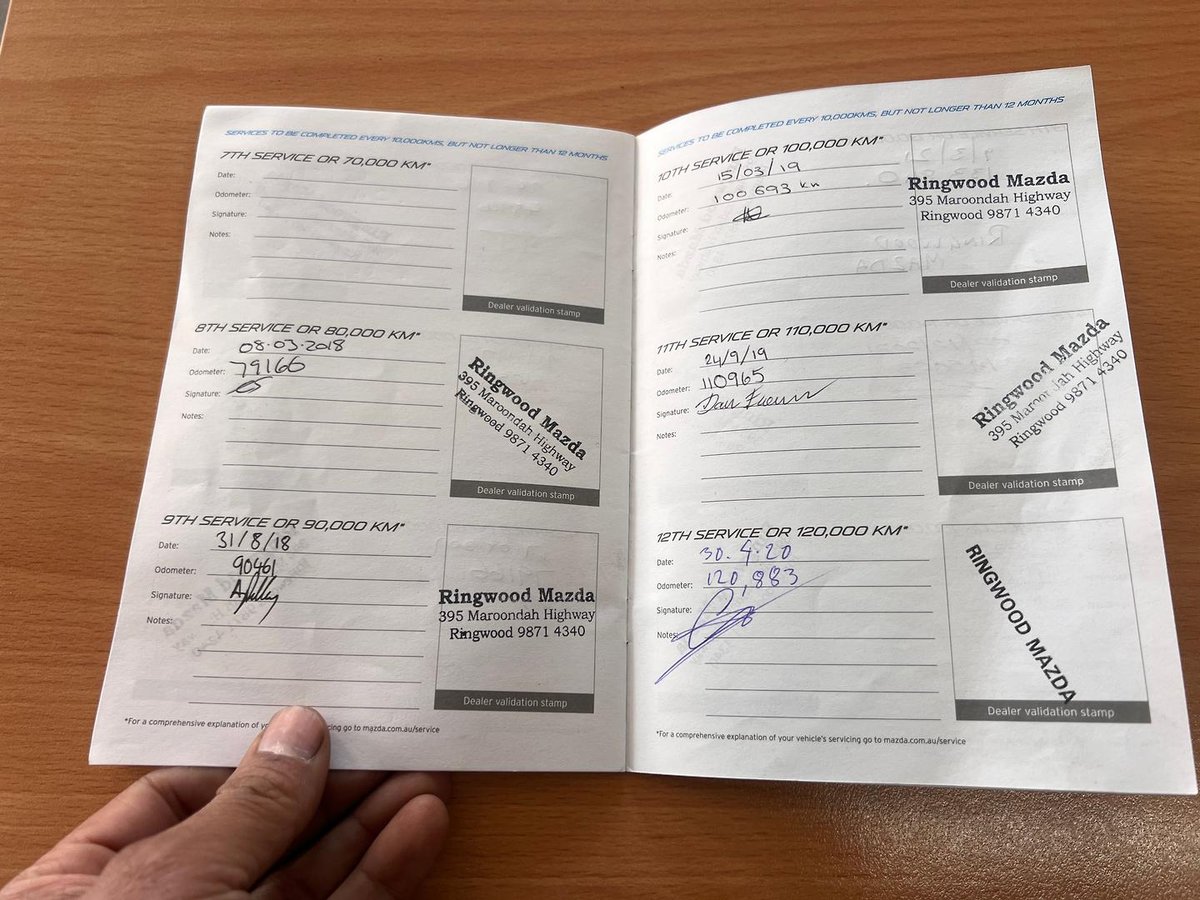 SERVICES TO BE COMPLETED EVERY 10,000KMS, BUT NOT LONGER THAN 12 MONTHS
7TH SERVICE OR 70,000 KM*
Date:
Odometer:
Signature:
Notes:
Dealer validation stamp
8TH SERVICE OR 80,000 KM*
Date: 08.03.2018
Odometer: 79166
Signature:
Notes:
Ringwood Mazda
395 Maroondah Highway
Ringwood 9871 4340
Dealer validation stamp
9TH SERVICE OR 90,000 KM*
Date: 31/8/18
Odometer: 90461
Signature:
Notes:
Ringwood Mazda
395 Maroondah Highway
Ringwood 9871 4340
Dealer validation stamp
*For a comprehensive explanation of servicing go to mazda.com.au/service
SERVICES TO BE COMPLETED EVERY 10,000KMS, BUT NOT LONGER THAN 12 MONTHS
10TH SERVICE OR 100,000 KM*
Date: 15/03/19
Odometer: 100 693 km
Signature:
Notes:
Ringwood Mazda
395 Maroondah Highway
Ringwood 9871 4340
Dealer validation stamp
11TH SERVICE OR 110,000 KM*
Date: 24/9/19
Odometer: 110965
Signature:
Notes:
Ringwood Mazda
395 Maroondah Highway
Ringwood 9871 4340
Dealer validation stamp
12TH SERVICE OR 120,000 KM*
Date: 30.4.20
Odometer: 120,883
Signature:
Notes:
RINGWOOD MAZDA
Dealer validation stamp
*For a comprehensive explanation of your vehicle's servicing go to mazda.com.au/service